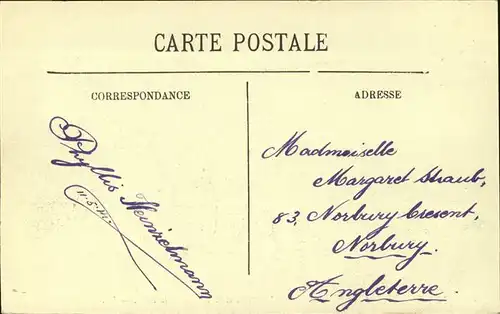 CARTE POSTALE
CORRESPONDANCE
Phyllis Heinzelmann
ADRESSE
Madmoiselle
Margaret Straub,
83, Norbury Cresent,
Norbury.
Angleterre.